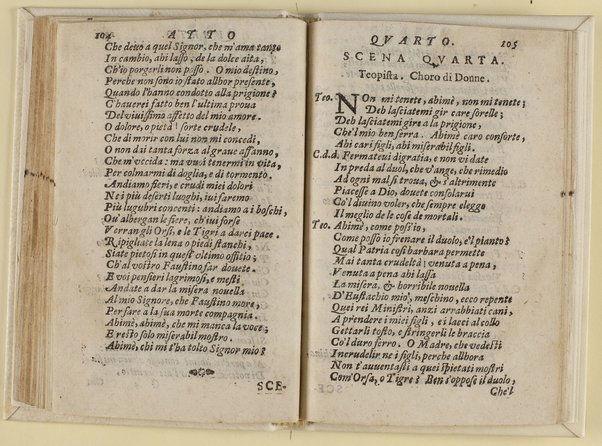 104 ATTO
Che deuo a quel Signor, che m'ama tanto
In cambio, ahi lasso, de la dolce aita,
Ch'io porgerli non posso. O mio destino,
Perche non sono io stato allhor presente,
Quando l'hanno condotto alla prigione?
C'hauerei fatto ben l'ultima proua
Del viuissimo affetto del mio amore.
O dolore, o pietà! sorte crudele,
Che di morir con lui non mi concedi,
O non dai tanta forza al graue affanno,
Che m'vccida: ma vuoi tenermi in vita,
Per colmarmi di doglia, e di tormento.
Andiamo fieri, e crudi miei dolori
Ne i più deserti luoghi, iui faremo
Più lugubri concenti: andiamo a i boschi,
Ou'albergan le fiere, ch'iui forse
Verran gli Orsi, e le Tigri a darci pace.
Ripigliate la lena o piedi stanchi,
Siate pietosi in quest'vltimo offitio;
Ch'al vostro Faustino far douete.
E voi pensieri lagrimosi, e mesti
Andate a dar la misera nouella
Al mio Signore, che Faustino more,
Per fare a la sua morte compagnia.
Ahimè, ahimè, che mi manca la voce;
E resto solo miserabil mostro.
Ahimè, chi mi t'ha tolto Signor mio?
SCE-
QVARTO. 105
SCENA QVARTA.
Teopista. Choro di Donne.
Teo. NOn mi tenete, ahimè, non mi tenete;
Deh lasciatemi gir care sorelle;
Deh lasciatemi gire a la prigione,
Che'l mio ben serra. Ahimè caro consorte,
Ahi cari figli, ahi miserabil figli.
C.d.d. Fermateui digratia, e non vi date
In preda al duol, che v'ange, che rimedio
Ad ogni mal si troua, & s'altrimente
Piacesse a Dio, douete consolarui
Co'l diuino voler, che sempre elegge
Il meglio de le cose de mortali.
Teo. Ahimè, come poss'io,
Come posso io frenare il duolo, e'l pianto?
Qual Patria così barbara permette
Mai tanta crudeltà; venuta a pena,
Venuta a pena ahi lassa
La misera, & horribile nouella
D'Eustachio mio, meschino, ecco repente
Quei rei Ministri, anzi arrabbiati cani,
A prendere i miei figli, e i lacci al collo
Gettarli tosto, e stringerli le braccia
Co'l duro ferro. O Madre, che vedesti
Incrudelir ne i figli, perche allhora
Non t'auuentasti a quei spietati mostri
Com'Orsa, o Tigre? Ben s'oppose il duolo,
Che'l